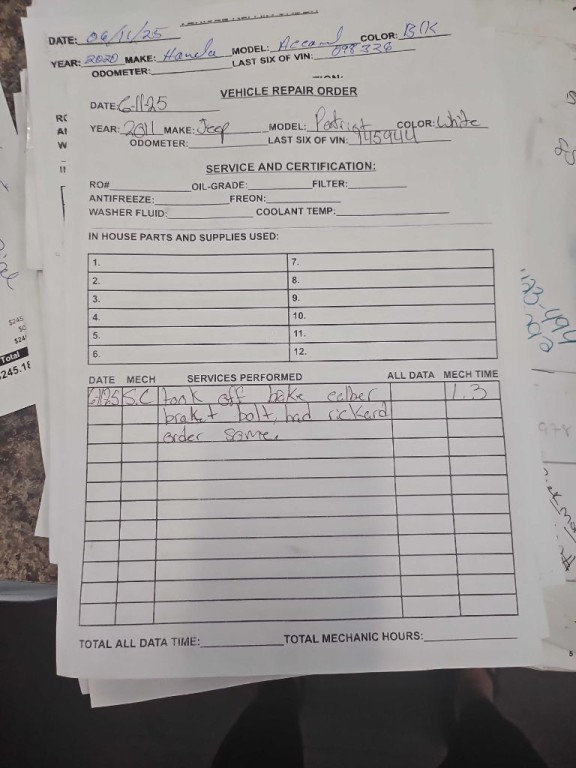 DATE: 06/11/25
YEAR: 2020 MAKE: Honda MODEL: Accord COLOR: Blk
ODOMETER: LAST SIX OF VIN: 098326
VEHICLE REPAIR ORDER
DATE: 6-11-25
YEAR: 2011 MAKE: Jeep MODEL: Patriot COLOR: White
ODOMETER: LAST SIX OF VIN: 145944
SERVICE AND CERTIFICATION:
RO# OIL-GRADE: FILTER:
ANTIFREEZE: FREON:
WASHER FLUID: COOLANT TEMP:
IN HOUSE PARTS AND SUPPLIES USED:
1. 7.
2. 8.
3. 9.
4. 10.
5. 11.
6. 12.
DATE MECH SERVICES PERFORMED ALL DATA MECH TIME
S.C took off bake calber 1.3
braket bolt, had rickerd
order same.
TOTAL ALL DATA TIME: TOTAL MECHANIC HOURS:
Total
245.18